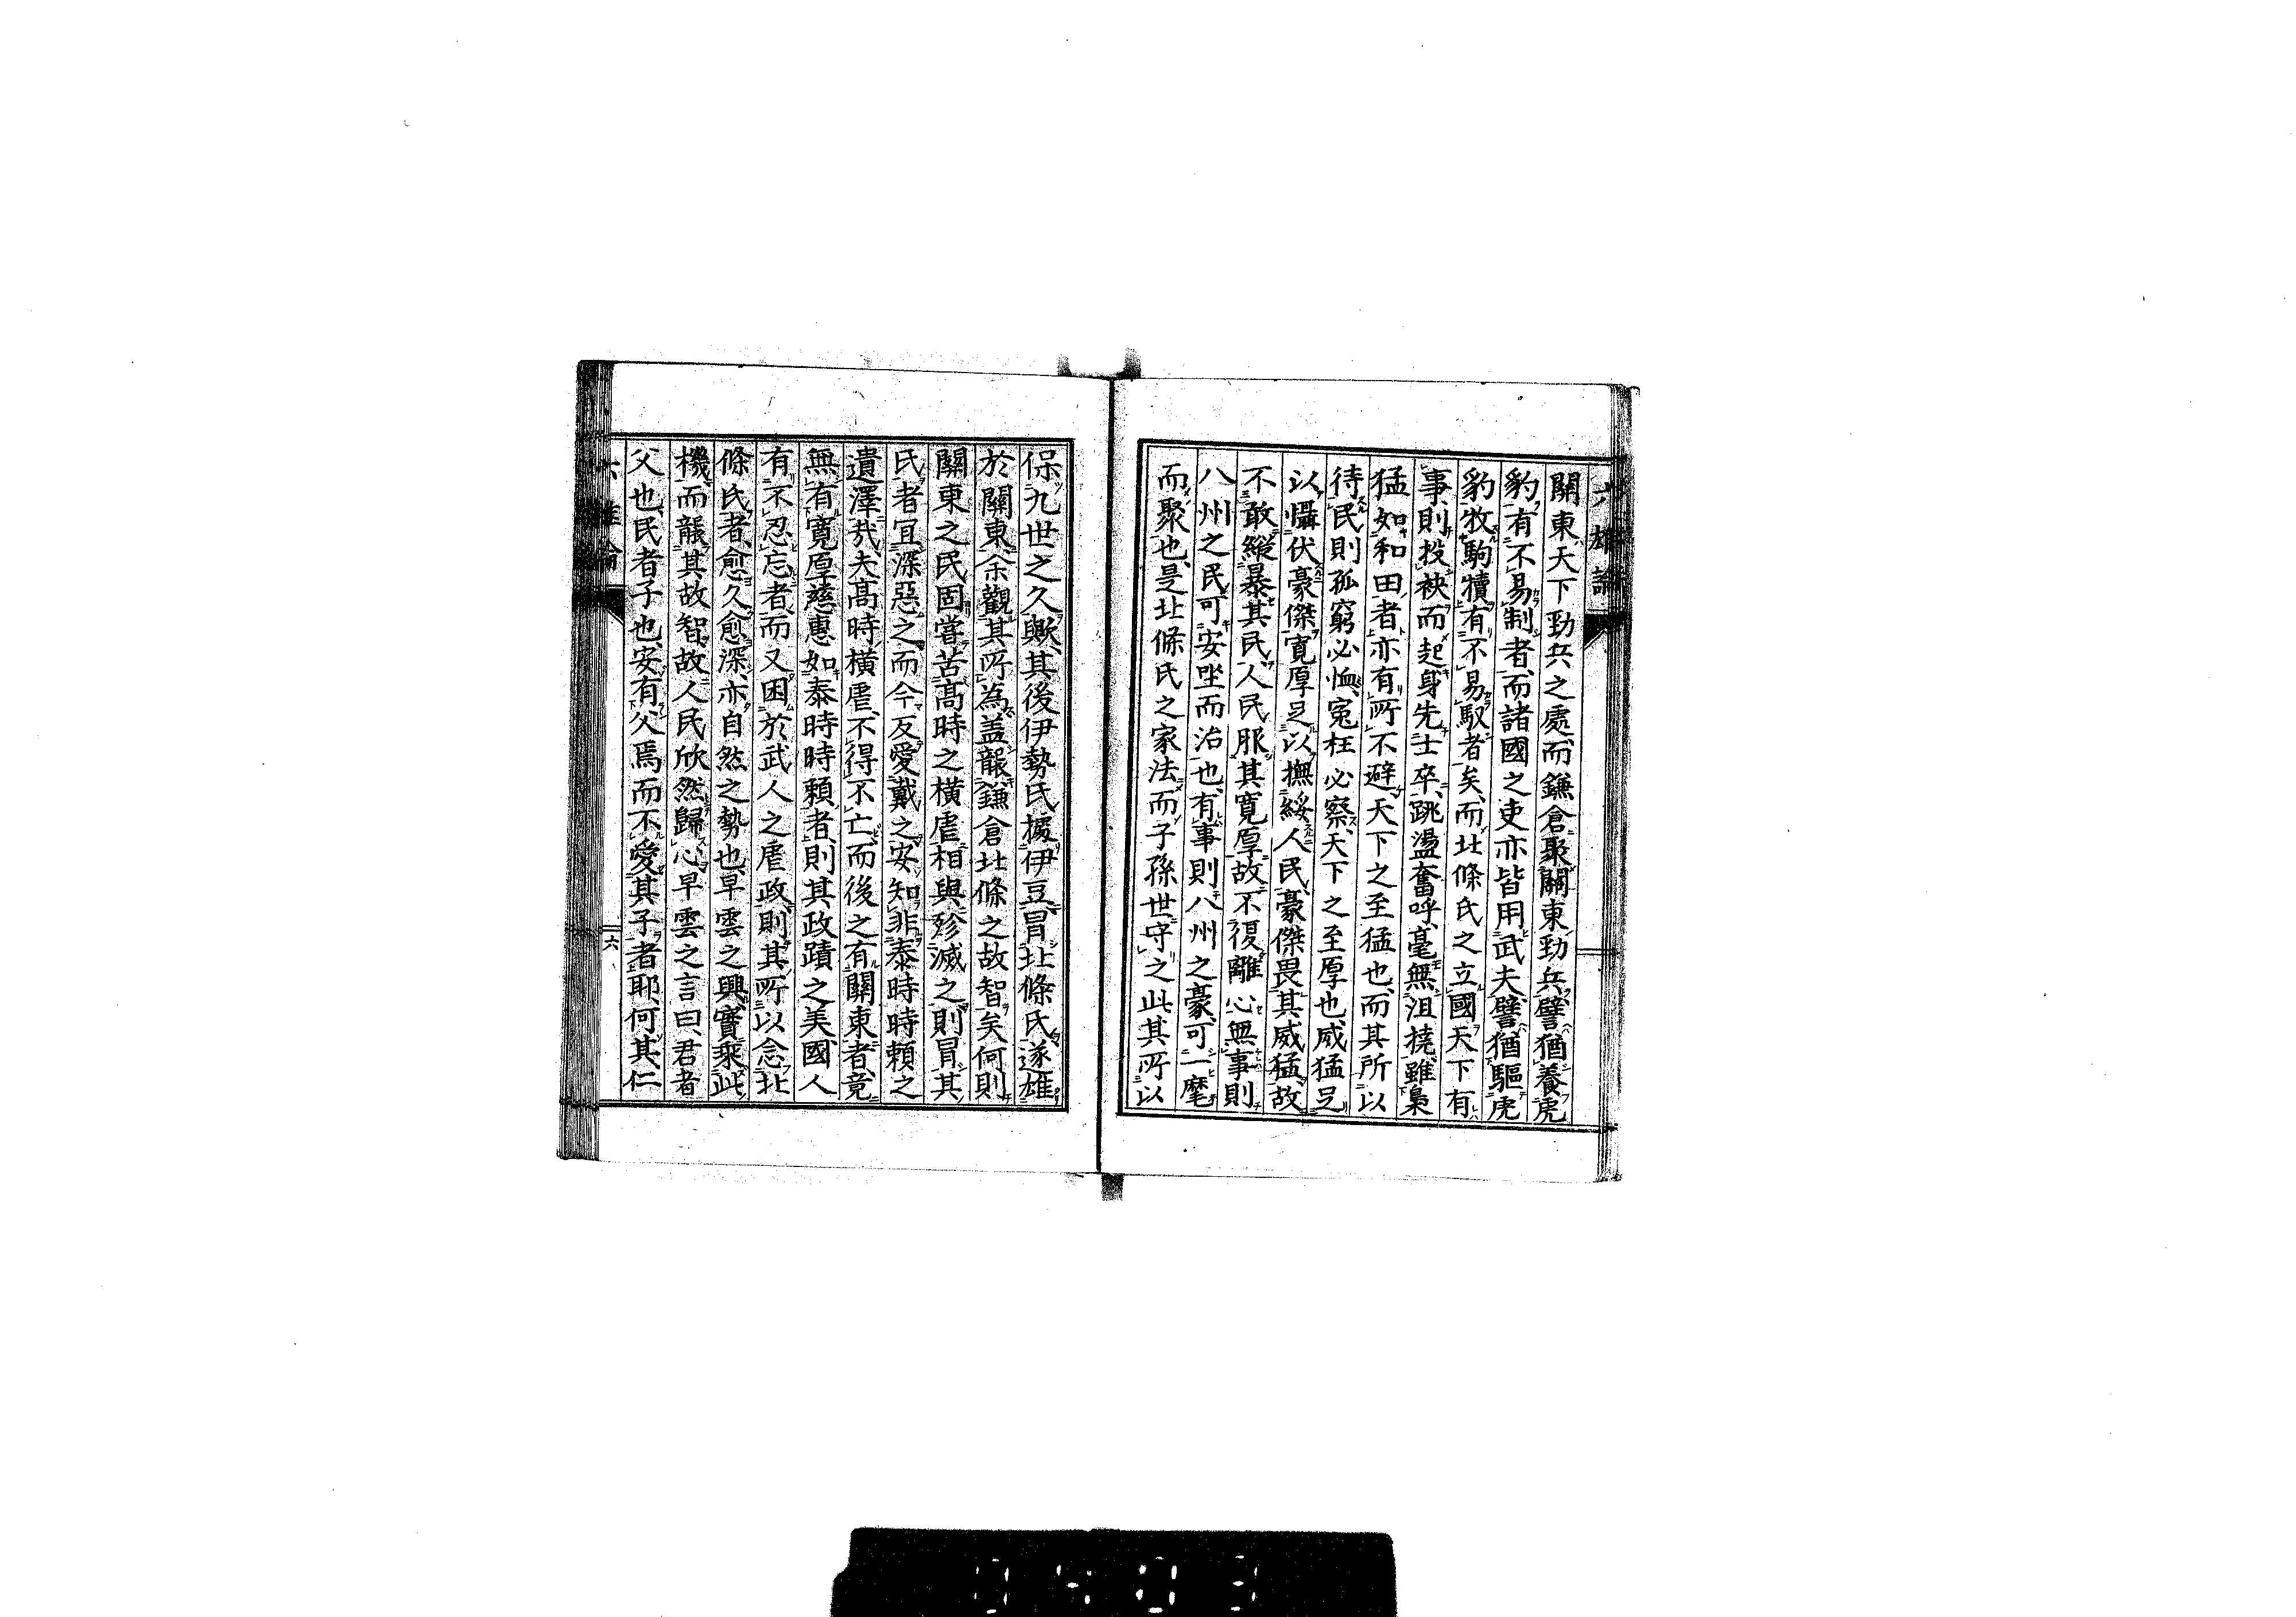 六雄論
關東天下勁兵之處、而鎌倉聚關東勁兵、譬猶養虎
豹、有不易制者、而諸國之吏亦皆用武夫、譬猶驅虎
豹牧駒犢、有不易馭者矣、而北條氏之立國天下有
事、則投袂而起、身先士卒、跳盪奮呼、毫無沮撓、雖梟
猛如和田者、亦有所不避、天下之至猛也、而其所以
待民、則孤窮必恤、冤枉必察、天下之至厚也、威猛足
以懾伏豪傑、寬厚足以撫綏人民、豪傑畏其威猛、故
不敢縱暴其民、人民服其寬厚、故不復離心、無事則
八州之民、可安坐而治也、有事則八州之豪、可一麾
而聚也、是北條氏之家法、而子孫世守之、此其所以
保九世之久歟、其後伊勢氏據伊豆、冒北條氏、遂雄
於關東、余觀其所為、蓋襲鎌倉北條之故智矣、何則
關東之民、固嘗苦高時之橫虐、相與殄滅之、則冒其
氏者、宜深惡之、而今反愛戴之、安知非泰時時賴之
遺澤哉、夫高時橫虐、不得不亡、而後之有關東者、竟
無有寬厚慈惠如泰時時賴者、則其政蹟之美、國人
有不忍忘者、而又困於武人之虐政、則其所以念北
條氏者、愈久愈深、亦自然之勢也、早雲之興、實乘此
機、而襲其故智、故人民欣然歸心、早雲之言曰、君者
父也、民者子也、安有父焉而不愛其子者耶、何其仁
六